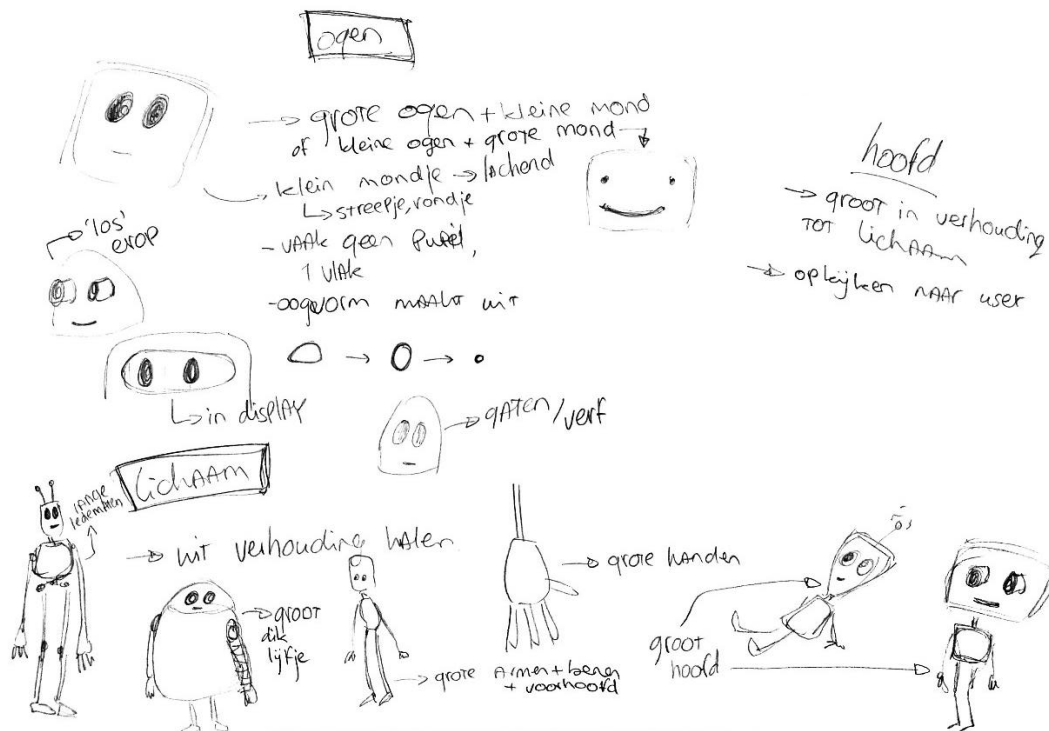 ogen
→ grote ogen + kleine mond
of kleine ogen + grote mond →
→ klein mondje → lachend
↳ streepje, rondje
- vAAk geen pupil,
1 vlAk
- oogvorm mAAkt uit
→ 'los'
erop
↳ in displAy
→ gATen/verf
hoofd
→ grooT in verhouding
TOT lichAAm
→ opkijken nAAr user
lichAAm
lAnge
ledematen
→ uit verhouding hAlen
→ groot
dik
lijfje
→ grote Armen + benen
+ voorhoofd
→ grote hAnden
groot
hoofd